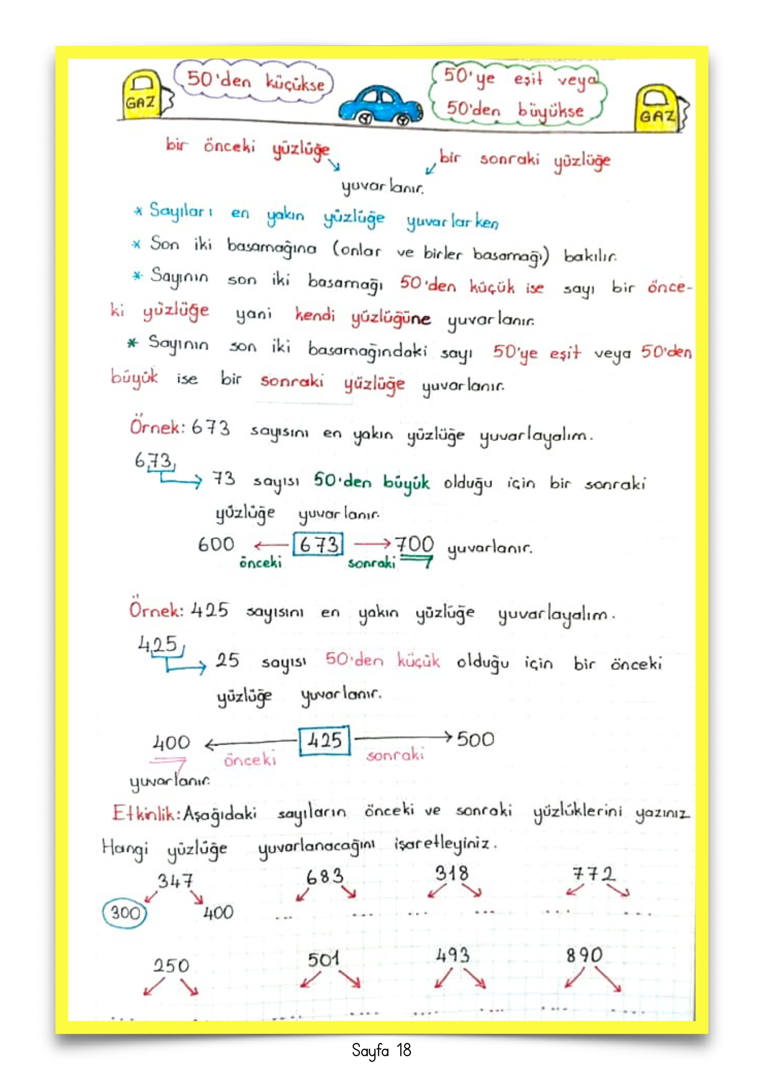 50'den küçükse
50'ye eşit veya
50'den büyükse
GAZ
GAZ
bir önceki yüzlüğe
bir sonraki yüzlüğe
yuvarlanır.
* Sayıları en yakın yüzlüğe yuvarlarken
* Son iki basamağına (onlar ve birler basamağı) bakılır.
* Sayının son iki basamağı 50'den küçük ise sayı bir önce-
ki yüzlüğe yani kendi yüzlüğüne yuvarlanır.
* Sayının son iki basamağındaki sayı 50'ye eşit veya 50'den
büyük ise bir sonraki yüzlüğe yuvarlanır.
Örnek: 673 sayısını en yakın yüzlüğe yuvarlayalım.
673
73 sayısı 50'den büyük olduğu için bir sonraki
yüzlüğe yuvarlanır.
600 ← 673 → 700 yuvarlanır.
önceki sonraki
Örnek: 425 sayısını en yakın yüzlüğe yuvarlayalım.
425
25 sayısı 50'den küçük olduğu için bir önceki
yüzlüğe yuvarlanır.
400 ← 425 → 500
önceki sonraki
yuvarlanır.
Etkinlik: Aşağıdaki sayıların önceki ve sonraki yüzlüklerini yazınız
Hangi yüzlüğe yuvarlanacağını işaretleyiniz.
347 683 318 772
300 400 ... ... ... ... ... ...
250 501 493 890
... ... ... ... ... ... ... ...
Sayfa 18